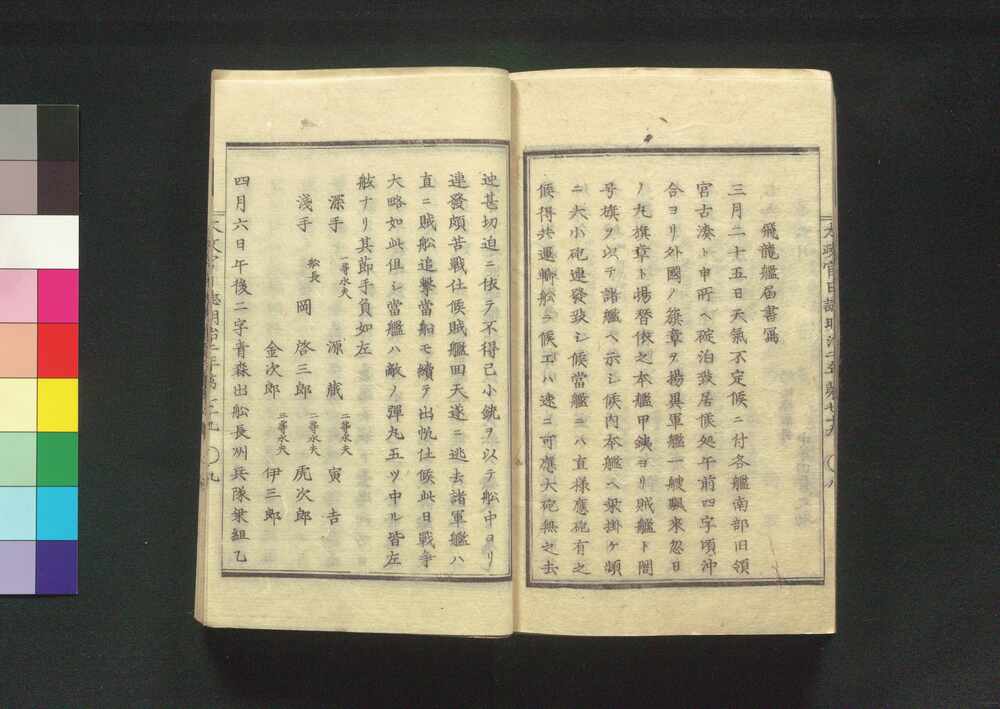 飛龍艦届書寫
三月二十五日天氣不定候ニ付各艦南部旧領
宮古湊ト申所ヘ碇泊致居候処午前四字頃沖
合ヨリ外國ノ籏章ヲ揚異軍艦一艘颿来忽日
ノ丸旗章ト揚替依之本艦甲鉄ヨリ賊艦ト闇
号旗ヲ以テ諸艦ヘ示シ候内本艦ヘ乗掛ケ頻
ニ大小砲連發致シ候當艦ニハ直様應砲有之
候得共運轉船ニ候工ハ速ニ可應大砲無之去
迚甚切迫ニ依テ不得已小銃ヲ以テ船中ヨリ
連發頗苦戰仕候賊艦回天遂ニ逃去諸軍艦ハ
直ニ賊船追撃當船モ續テ出帆仕候此日戰争
大略如此但シ當艦ハ敵ノ彈丸五ツ中ル皆左
舷ナリ其節手負如左
深手 一等水夫 源藏 二等水夫 寅吉
淺手 船長 岡啓三郎 二等水夫 虎次郎
金次郎 三等水夫 伊三郎
四月六日午後二字青森出船長州兵隊乗組乙